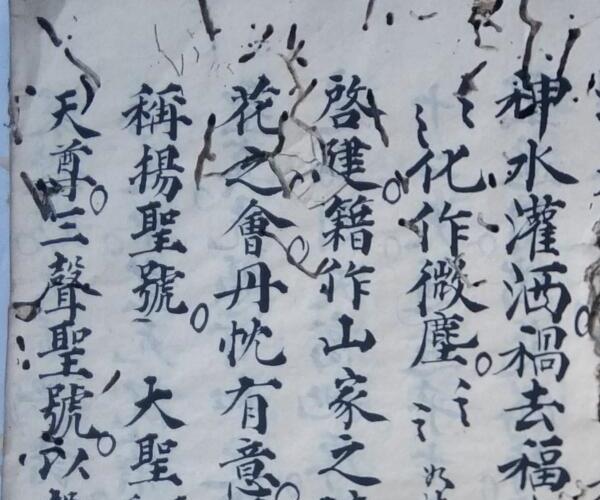 神水灌洒禍去福
〻〻化作微塵〻〻
啓建籍作山家之
花之會丹忱有意
稱揚聖號 大聖
天尊三聲聖號以